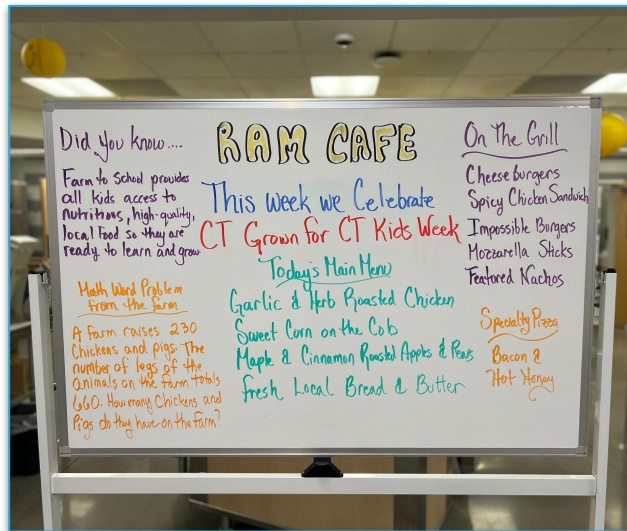 RAM CAFE
Did you know....
Farm to School provides
all kids access to
nutritious, high-quality,
local food so they are
ready to learn and grow
Math Word Problem
from the farm
A farm raises 230
Chickens and pigs. The
number of legs of the
animals on the farm totals
660. How many Chickens and
Pigs do they have on the farm?
This week we Celebrate
CT Grown for CT Kids Week
Today's Main Menu
Garlic & Herb Roasted Chicken
Sweet Corn on the Cob
Maple & Cinnamon Roasted Apples & Pears
Fresh Local Bread & Butter
On The Grill
Cheeseburgers
Spicy Chicken Sandwich
Impossible Burgers
Mozzarella Sticks
Featured Nachos
Speciality Pizza
Bacon &
Hot Honey